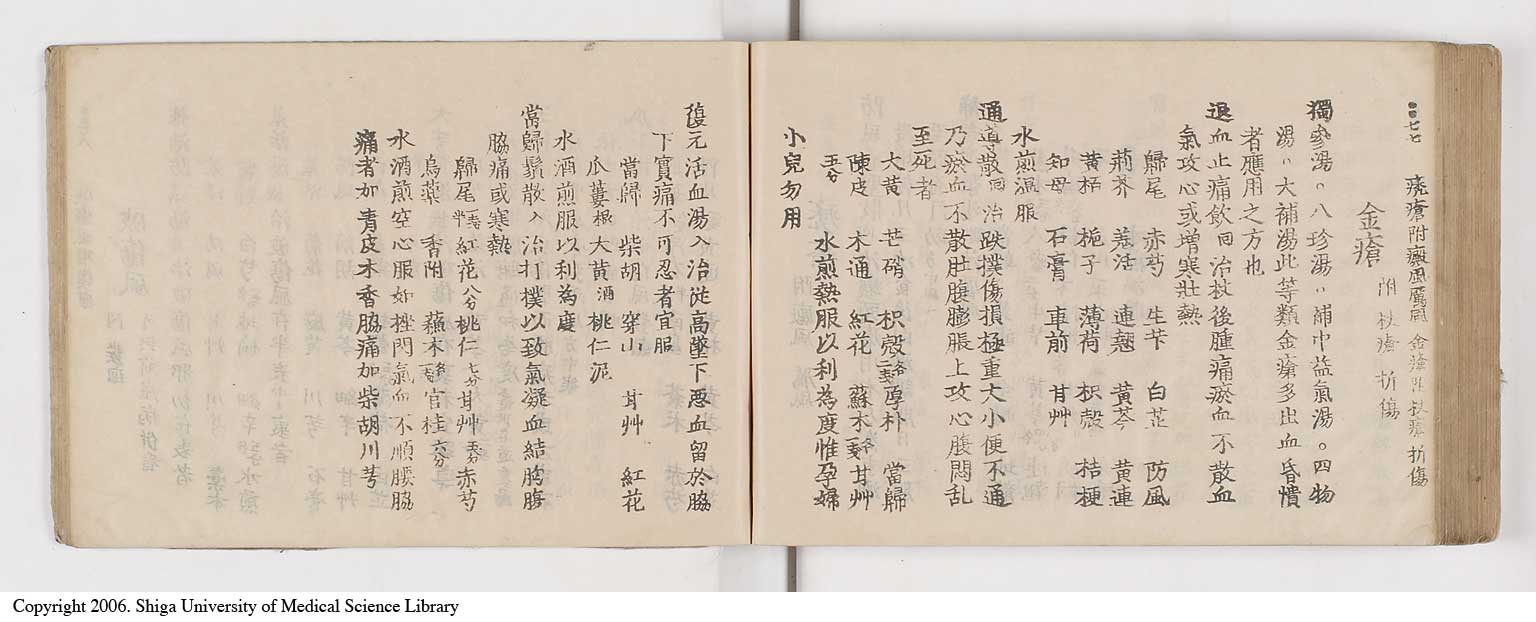 二七七 疣瘡附癜風厲風 金瘡附杖瘡折傷
金瘡 附杖瘡 折傷
獨參湯。八珍湯。補中益氣湯。四物
湯。大補湯此等類金瘡多出血昏憒
者應用之方也
退血止痛飲回治杖後腫痛瘀血不散血
氣攻心或增寒壯熱
歸尾 赤芍 生芐 白芷 防風
荊芥 羌活 連翹 黃芩 黃連
黃栢 梔子 薄荷 枳殼 桔梗
知母 石膏 車前 甘艸
水煎溫服
通導散回治跌撲傷損極重大小便不通
乃瘀血不散肚腹膨脹上攻心腹悶乱
至死者
大黃 芒硝 枳殼各二戔厚朴 當歸
陳皮 木通 紅花 蘇木各一戔甘艸
五分 水煎熱服以利為度惟孕婦
小兒勿用
復元活血湯入治從高墜下悪血留於脇
下實痛不可忍者宜服
當歸 柴胡 穿山 甘艸 紅花
瓜蔞根 大黃酒 桃仁泥
水酒煎服以利為度
當歸鬚散入治打撲以致氣凝血結胸腹
脇痛或寒熱
歸尾一戔半紅花八分桃仁七分甘艸五分赤芍
烏藥 香附 蘓木各一戔官桂六分
水酒煎空心服如挫閃氣血不順腰脇
痛者加青皮木香脇痛加柴胡川芎
Copyright 2006. Shiga University of Medical Science Library